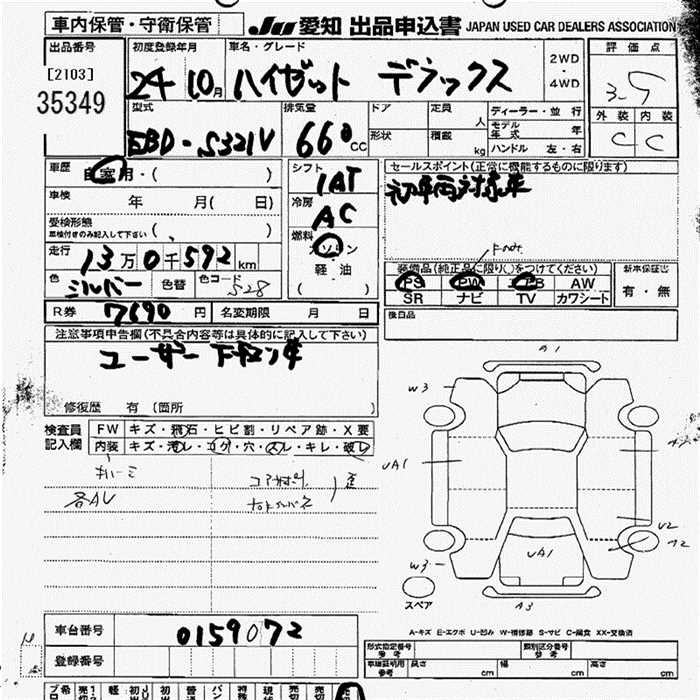 車内保管・守衛保管
JU 愛知 出品申込書 JAPAN USED CAR DEALERS ASSOCIATION
出品番号
[2103]
35349
初度登録年月
24 10月
車名・グレード
ハイゼット デラックス
2WD
・
4WD
評価点
3.5
外装 内装
C C
型式
EBD-S321V
排気量
660 CC
ドア
形状
定員 人
積載 kg
ディーラー・並行
モデル年式 年
ハンドル 左・右
車歴
自家用・( )
車検
年 月( 日)
受検形態
車検付きのみ記入して下さい ( )
走行
13万0千592km
色
シルバー
色替
色コード
S28
シフト
1AT
冷房
AC
燃料
ガソリン
軽油
( )
セールスポイント(正常に機能するものに限ります)
初年両対象車
装備品(純正品に限り○をつけてください)
PS PW AB AW
SR ナビ TV カワシート
新車保証書
有・無
後日品
R券 7690 円
名変期限 月 日
注意事項申告欄(不具合内容等は具体的に記入して下さい)
ユーザー下取り車
修復歴 有 (箇所 )
検査員記入欄
FW キズ・飛石・ヒビ割・リペア跡・X要
内装 キズ・汚レ・コゲ・穴・スレ・キレ・破レ
各AU
A1
W3
UA1
U2
A2
W3
UA1
A3
スペア
A-キズ E-エクボ U-凹み W-補修跡 S-サビ C-腐食 XX-交換済
車台番号
0159072
登録番号
型式指定番号
参考
類別区分番号
参考
車庫証明用
参考
長さ cm
幅 cm
高さ cm